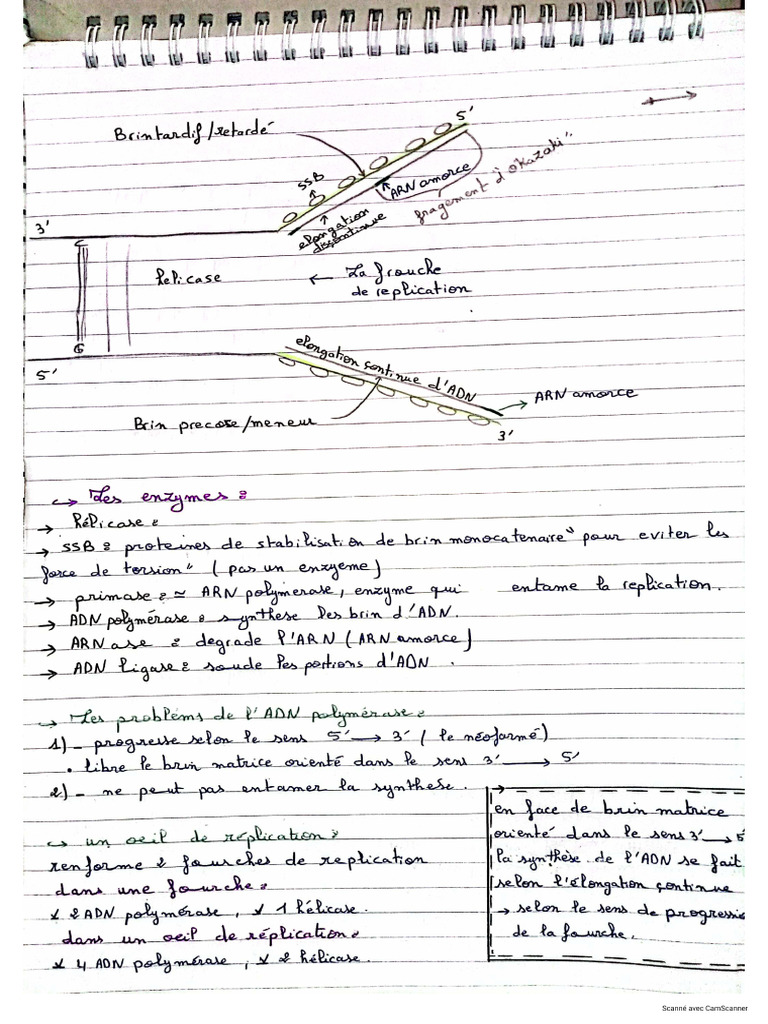 Brin tardif/retardé
5'
SSB
ARN amorce
fragement d'okazaki"
elongation
discontinue
3'
C
Helicase
← La frouche
de replication
G
5'
elongation continue d'ADN
ARN amorce
Brin precose/meneur
3'
↪ Les enzymes :
→ Hélicase :
→ SSB : proteines de stabilisation de brin monocatenaire" pour eviter les
force de torsion" ( pas un enzyeme)
→ primase : ≃ ARN polymerase, enzyme qui entame la replication.
→ ADN polymérase : synthese les brin d'ADN.
→ ARNase : degrade l'ARN ( ARN amorce)
→ ADN ligase : soude les portions d'ADN .
→ Les problèms de l'ADN polymérase :
1)_ progresse selon le sens 5' → 3' ( le néoformé)
. libre le brin matrice orienté dans le sens 3' → 5'
2)_ ne peut pas entamer la synthèse .
↪ un oeil de réplication :
renforme 2 fourches de replication
dans une fourche :
× 2 ADN polymérase , × 1 hélicase.
dans un oeil de réplication :
× 4 ADN polymérase , × 2 hélicase.
en face de brin matrice
orienté dans le sens 3' → 5
la synthèse de l'ADN se fait
selon l'élongation continue
→ selon le sens de progressio
de la fourche.
Scanné avec CamScanner